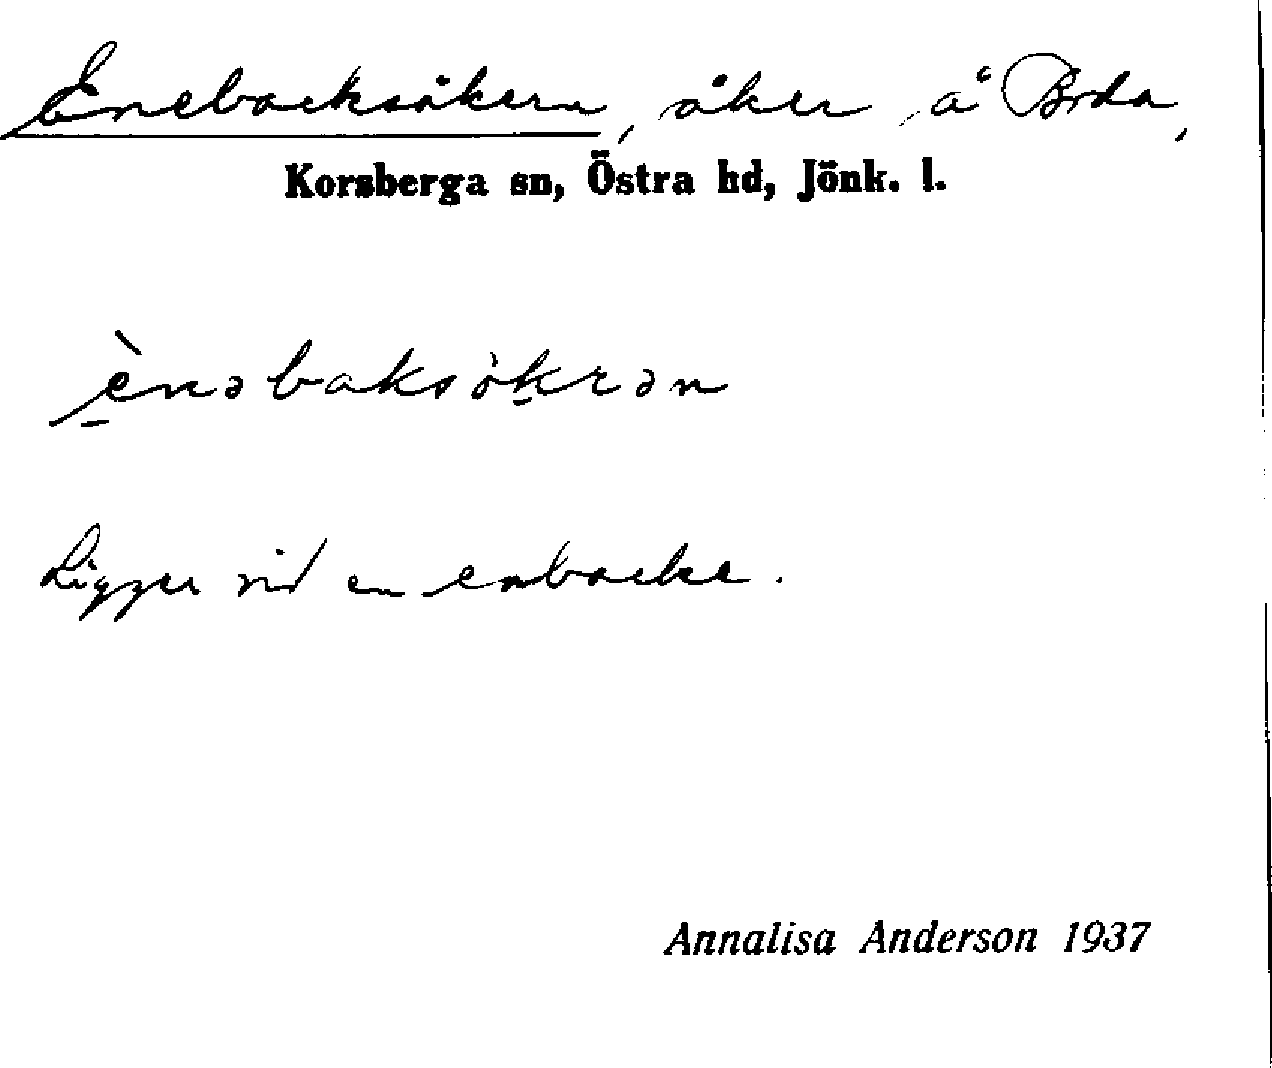 Enebacksåkern, åker å Boda,
Korsberga sn, Östra hd, Jönk. l.
ènəbaksåkrən
Ligger vid en enbacke.
Annalisa Anderson 1937